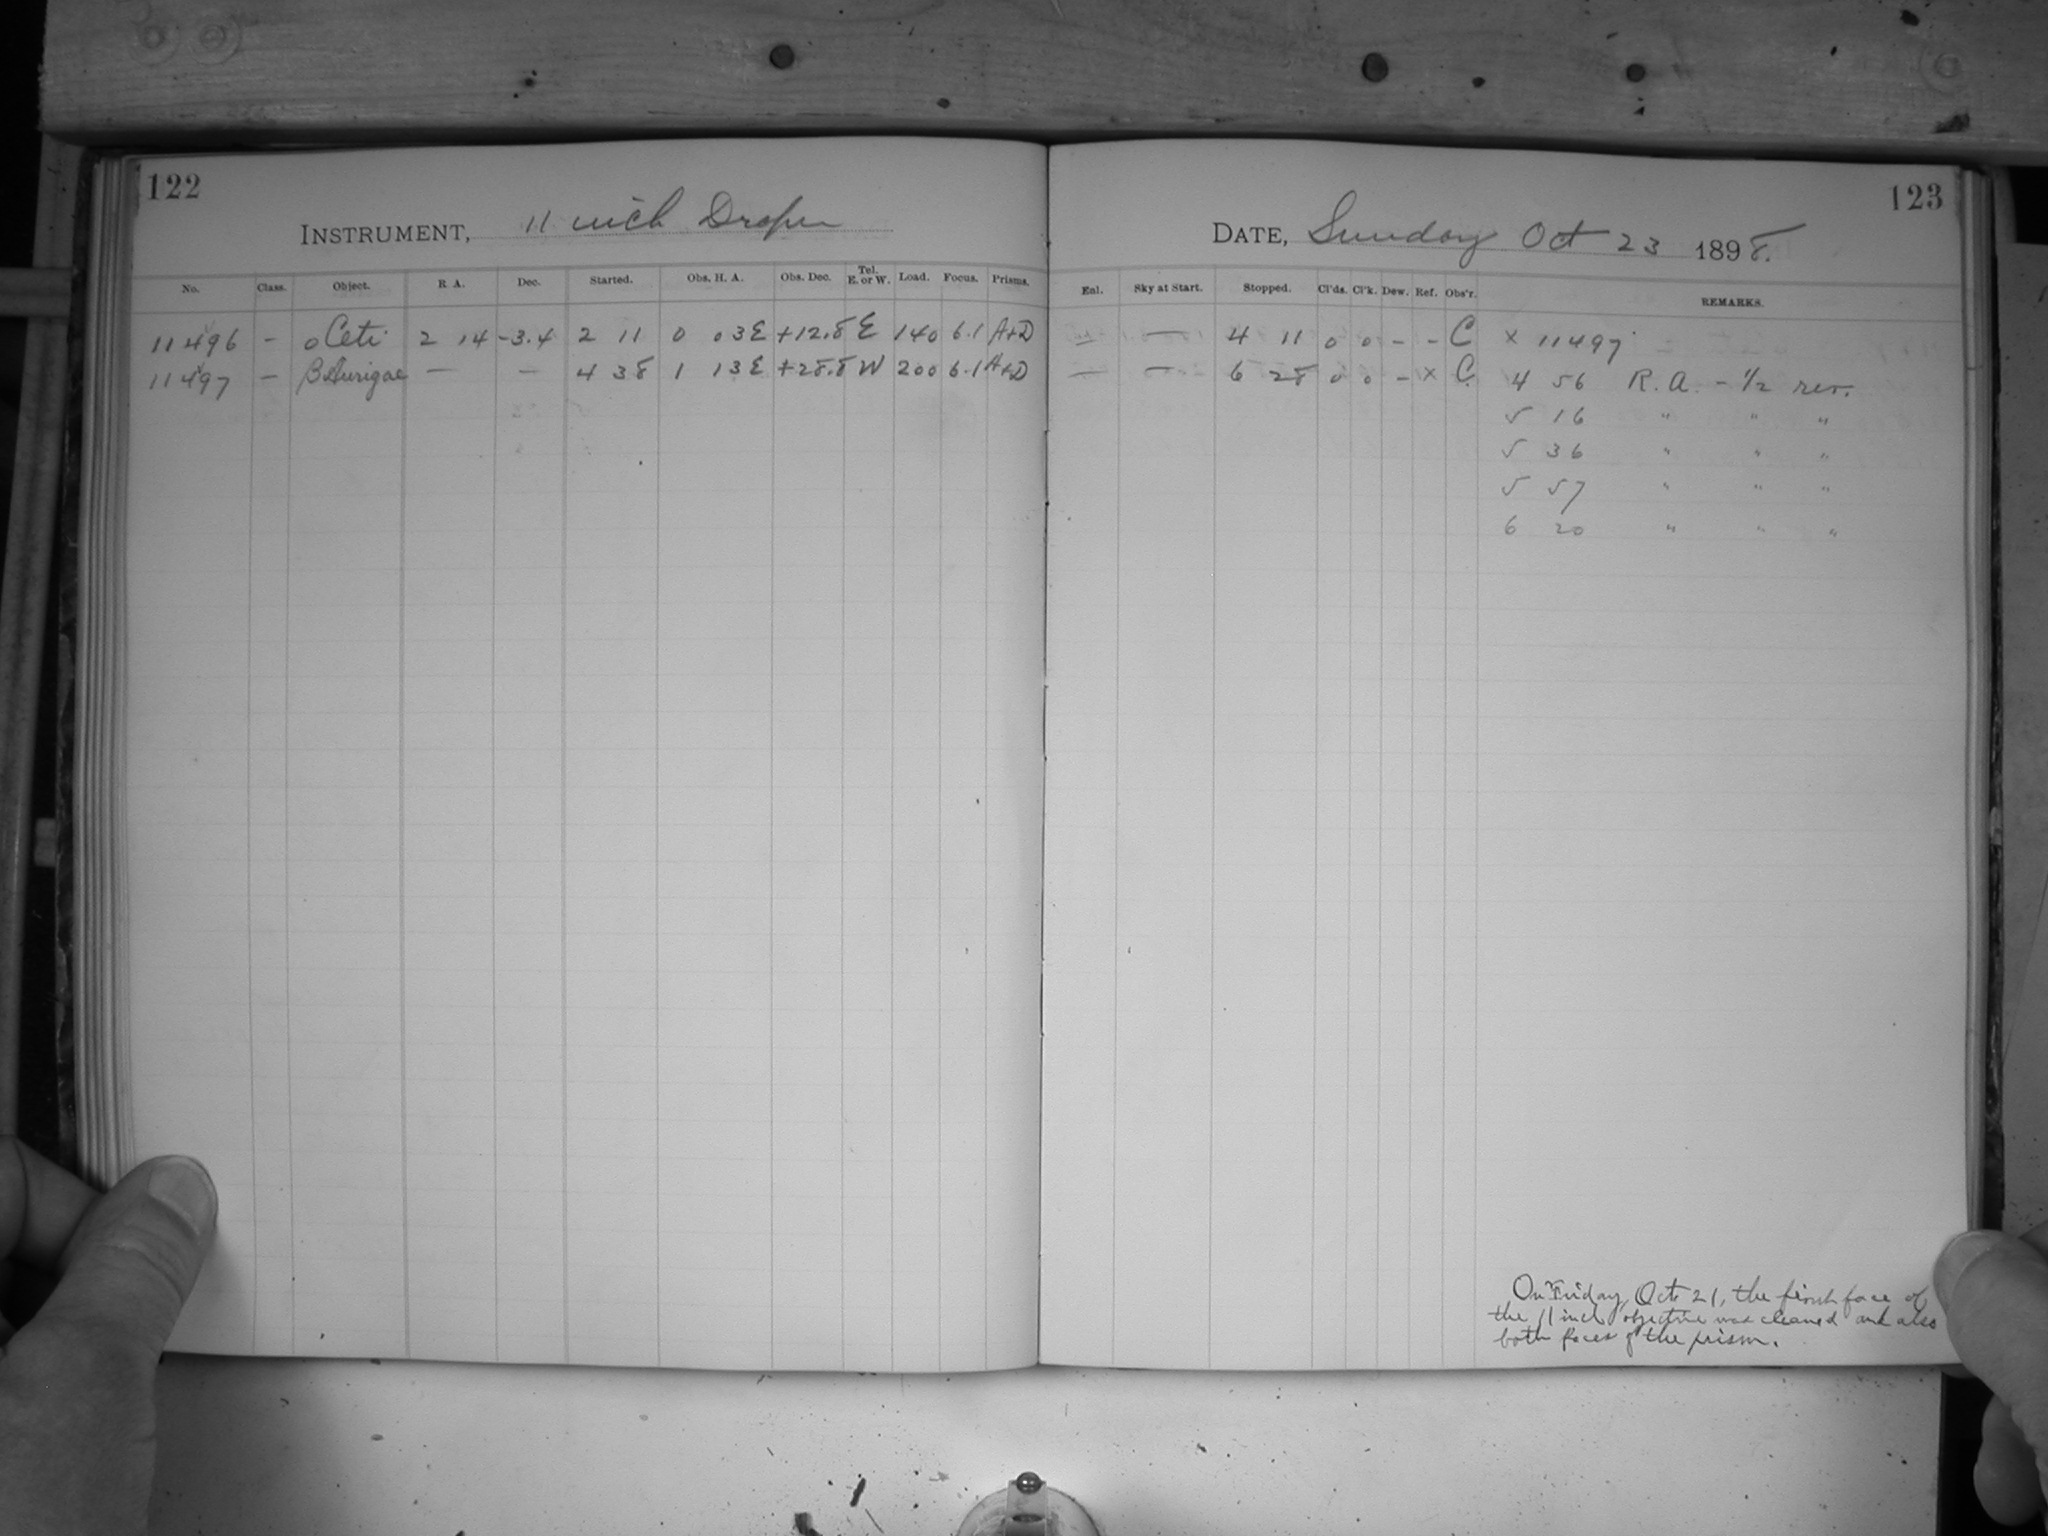 122
INSTRUMENT, 11 inch Draper
No. Class. Object. R. A. Dec. Started. Obs. H. A. Obs. Dec. Tel. E. or W. Load. Focus. Prisms.
11496 - o Ceti 2 14 -3.4 2 11 0 03E +12.8 E 140 6.1 A+D
11497 - β Aurigae - - 4 38 1 13E +28.8 W 200 6.1 A+D
123
DATE, Sunday Oct 23 1898.
Enl. Sky at Start. Stopped. Cl'ds. Cl'k. Dew. Ref. Obs'r. REMARKS.
- - 4 11 0 0 - - C x 11497
- - 6 28 0 0 - x C 4 56 R.A. - 1/2 rev.
5 16 " " "
5 36 " " "
5 57 " " "
6 20 " " "
On Friday, Oct. 21, the front face of
the 11 inch objective was cleaned and also
both faces of the prism.